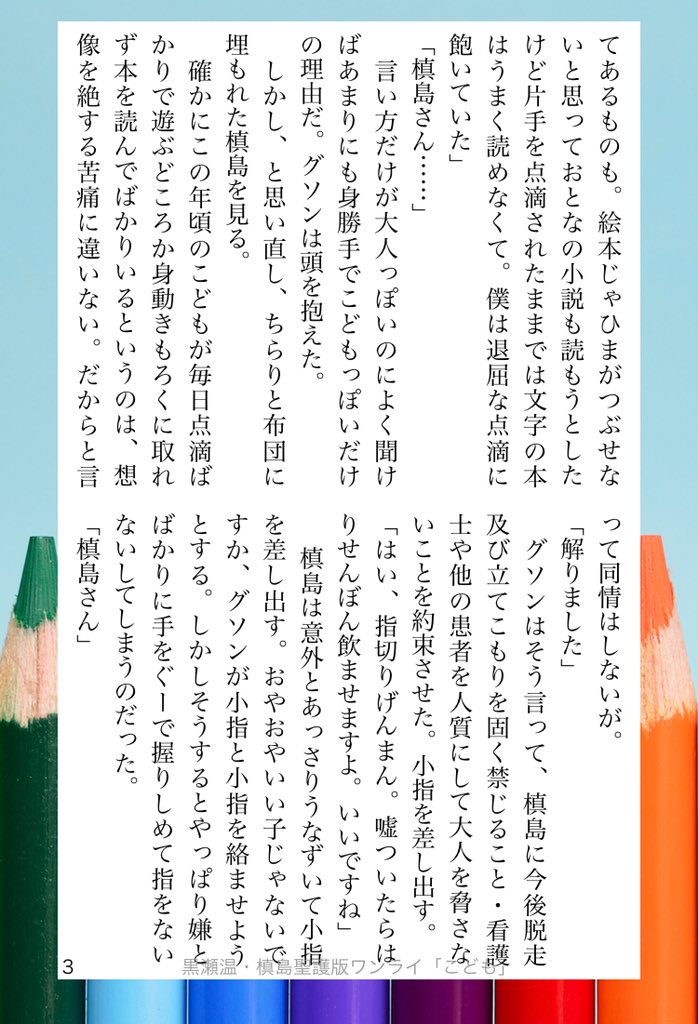 てあるものも。絵本じゃひまがつぶせな
いと思っておとなの小説も読もうとした
けど片手を点滴されたままでは文字の本
はうまく読めなくて。僕は退屈な点滴に
飽いていた」
「槙島さん……」
　言い方だけが大人っぽいのによく聞け
ばあまりにも身勝手でこどもっぽいだけ
の理由だ。グソンは頭を抱えた。
　しかし、と思い直し、ちらりと布団に
埋もれた槙島を見る。
　確かにこの年頃のこどもが毎日点滴ば
かりで遊ぶどころか身動きもろくに取れ
ず本を読んでばかりいるというのは、想
像を絶する苦痛に違いない。だからと言
って同情はしないが。
「解りました」
　グソンはそう言って、槙島に今後脱走
及び立てこもりを固く禁じること・看護
士や他の患者を人質にして大人を脅さな
いことを約束させた。小指を差し出す。
「はい、指切りげんまん。嘘ついたらは
りせんぼん飲ませますよ。いいですね」
　槙島は意外とあっさりうなずいて小指
を差し出す。おやおやいい子じゃないで
すか、グソンが小指と小指を絡ませよう
とする。しかしそうするとやっぱり嫌と
ばかりに手をぐーで握りしめて指をない
ないしてしまうのだった。
「槙島さん」
3
黒瀬温・槙島聖護版ワンライ「こども」